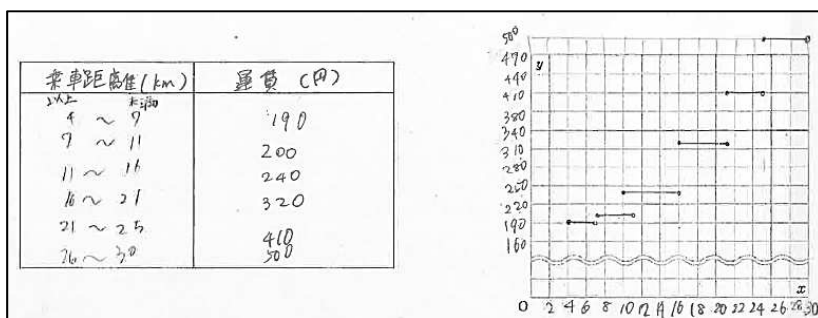 乗車距離(km) 運賃 (円)
以上 未満
4 ~ 7 190
7 ~ 11 200
11 ~ 16 240
16 ~ 21 320
21 ~ 25 410
26 ~ 30 500
500
470
440
410
380
340
310
280
250
220
190
160
y
x
0 2 4 6 8 10 12 14 16 18 20 22 24 26 28 30